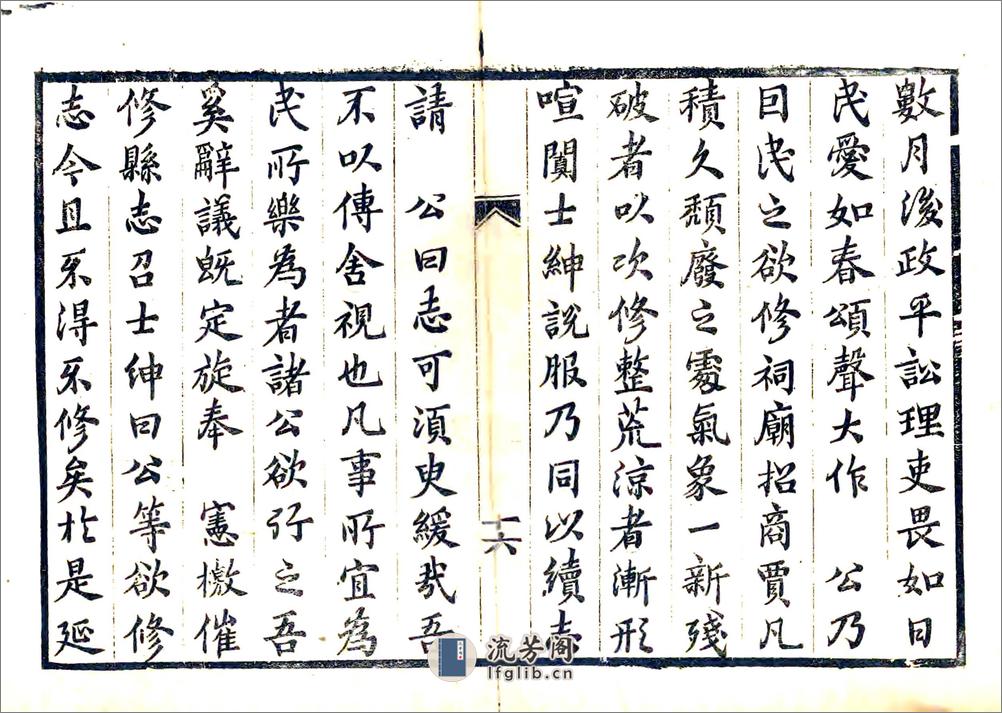 數月後政平訟理吏畏如日
民愛如春頌聲大作　公乃
因民之欲修祠廟招商賈凡
積久頹廢之處氣象一新殘
破者以次修整荒涼者漸形
喧闐士紳說服乃同以續志
十六
請　公曰志可須臾緩哉吾
不以傳舍視也凡事所宜為
民所樂為者諸公欲行之吾
奚辭議既定旋奉　憲檄催
修縣志召士紳曰公等欲修
志今且不得不修矣於是延
流芳阁
lfglib.cn